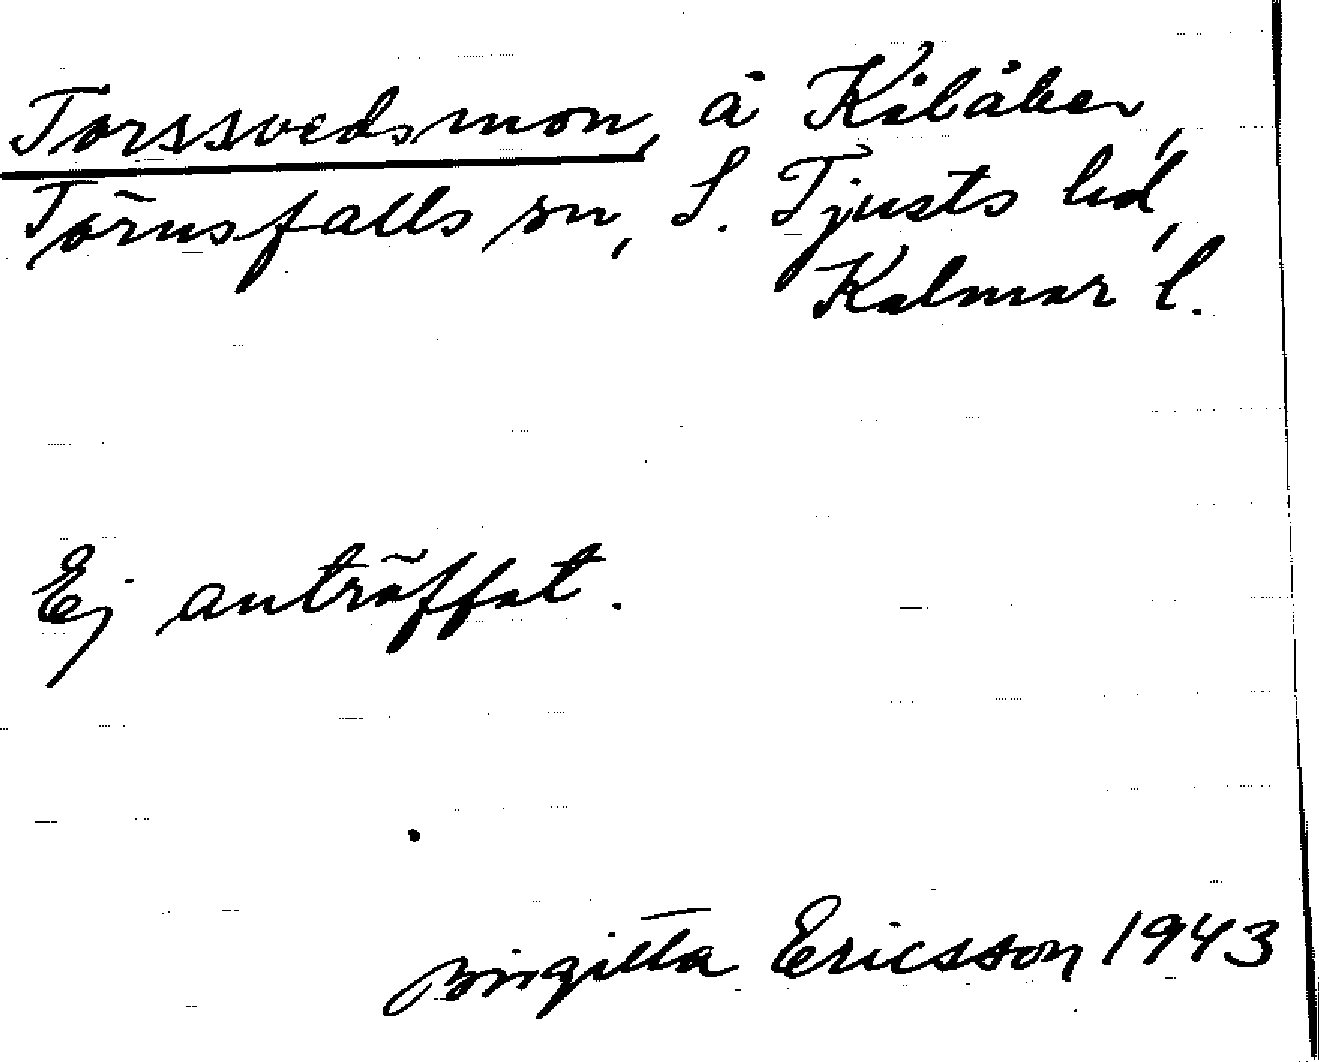 Torssvedsmon, å Kåbåker,
Törnsfalls sn, S. Tjusts hd,
Kalmar l.
Ej anträffat.
Birgitta Ericsson 1943